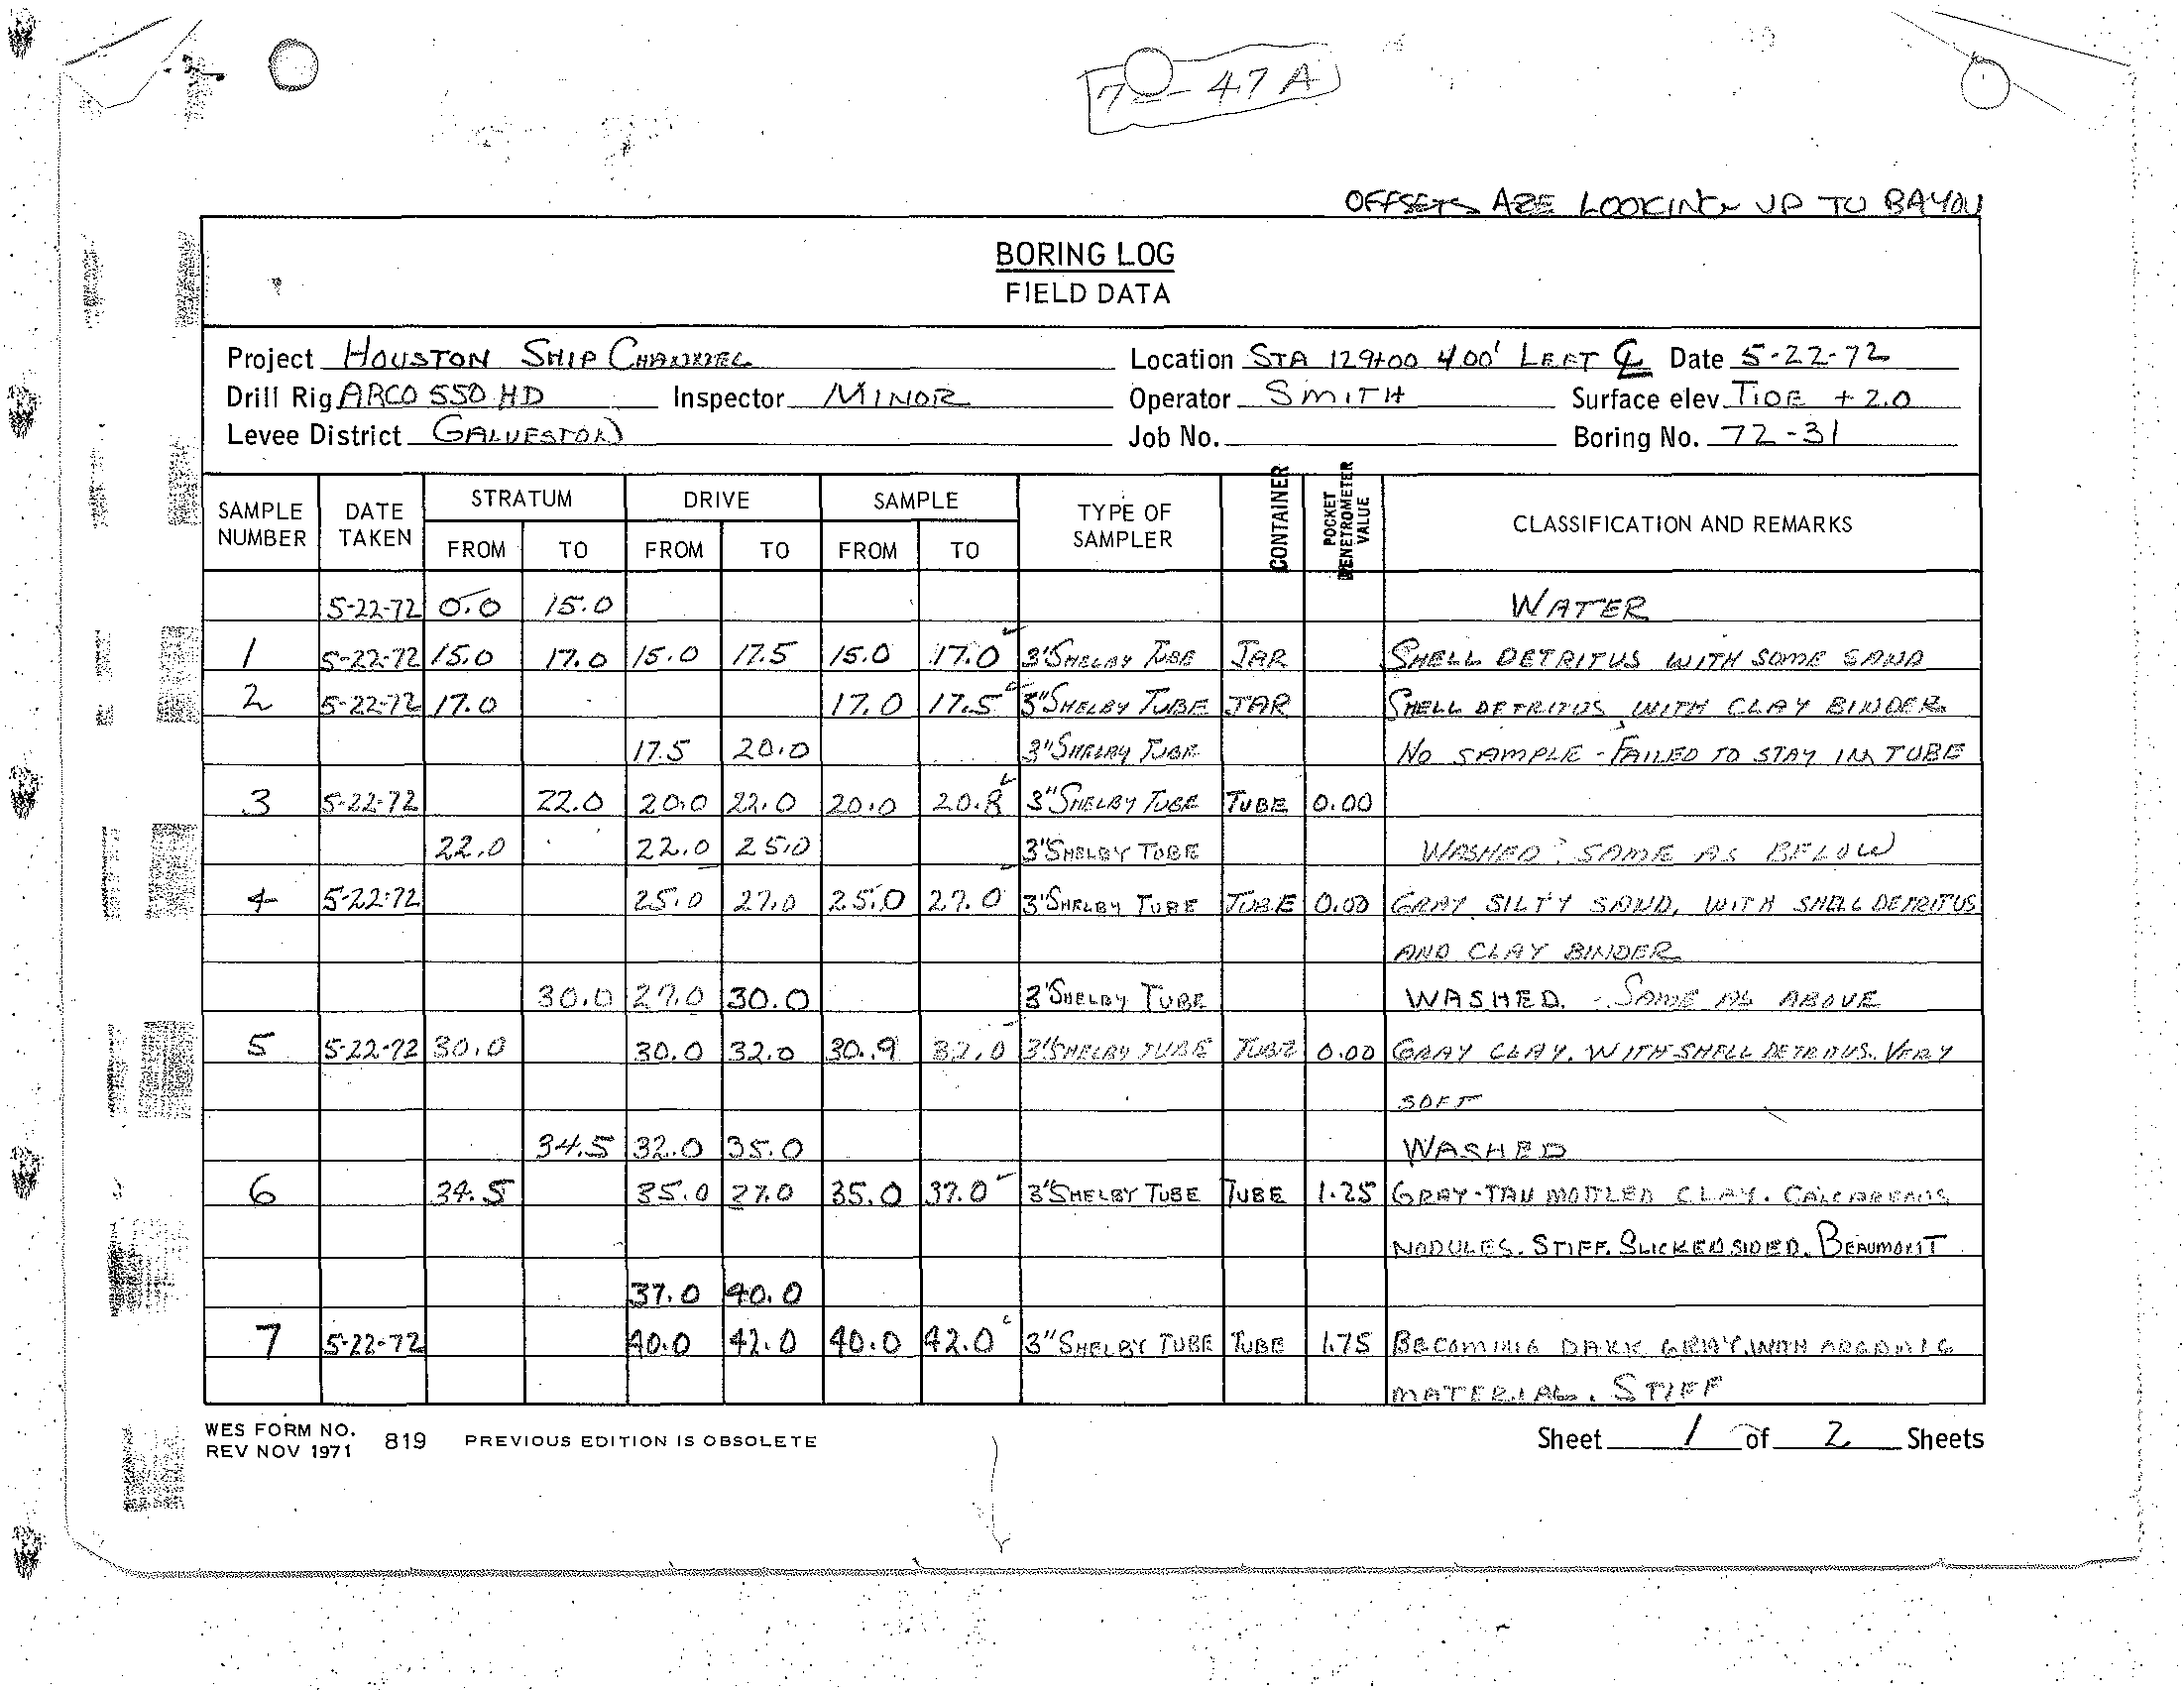 47 A
OFFSETS ARE LOOKING UP TO BAYOU
BORING LOG
FIELD DATA
Project HOUSTON SHIP CHANNEL Location STA 129+00 400' LEFT ℄ Date 5-22-72
Drill Rig ARCO 550 HD Inspector MINOR Operator SMITH Surface elev. TIDE +2.0
Levee District GALVESTON Job No. Boring No. 72-31
SAMPLE NUMBER DATE TAKEN STRATUM DRIVE SAMPLE TYPE OF SAMPLER CONTAINER POCKET PENETROMETER VALUE CLASSIFICATION AND REMARKS
FROM TO FROM TO FROM TO
5-22-72 0.0 15.0 WATER
1 5-22-72 15.0 17.0 15.0 17.5 15.0 17.0 3" SHELBY TUBE JAR SHELL DETRITUS WITH SOME SAND
2 5-22-72 17.0 17.0 17.5 3" SHELBY TUBE JAR SHELL DETRITUS WITH CLAY BINDER
17.5 20.0 3" SHELBY TUBE NO SAMPLE - FAILED TO STAY IN TUBE
3 5-22-72 22.0 20.0 22.0 20.0 20.8 3" SHELBY TUBE TUBE 0.00
22.0 22.0 25.0 3" SHELBY TUBE WASHED SAME AS BELOW
4 5-22-72 25.0 27.0 25.0 27.0 3" SHELBY TUBE TUBE 0.00 GRAY SILTY SAND, WITH SHELL DETRITUS
AND CLAY BINDER
30.0 27.0 30.0 3" SHELBY TUBE WASHED. SAME AS ABOVE
5 5-22-72 30.0 30.0 32.0 30.9 32.0 3" SHELBY TUBE TUBE 0.00 GRAY CLAY. WITH SHELL DETRITUS. VERY
SOFT
34.5 32.0 35.0 WASHED
6 34.5 35.0 37.0 35.0 37.0 3" SHELBY TUBE TUBE 1.25 GRAY-TAN MOTTLED CLAY. CALCAREOUS
NODULES. STIFF. SLICKENSIDED. BEAUMONT
37.0 40.0
7 5-22-72 40.0 42.0 40.0 42.0 3" SHELBY TUBE TUBE 1.75 BECOMING DARK GRAY, WITH ORGANIC
MATERIAL. STIFF
WES FORM NO. 819 PREVIOUS EDITION IS OBSOLETE Sheet 1 of 2 Sheets
REV NOV 1971